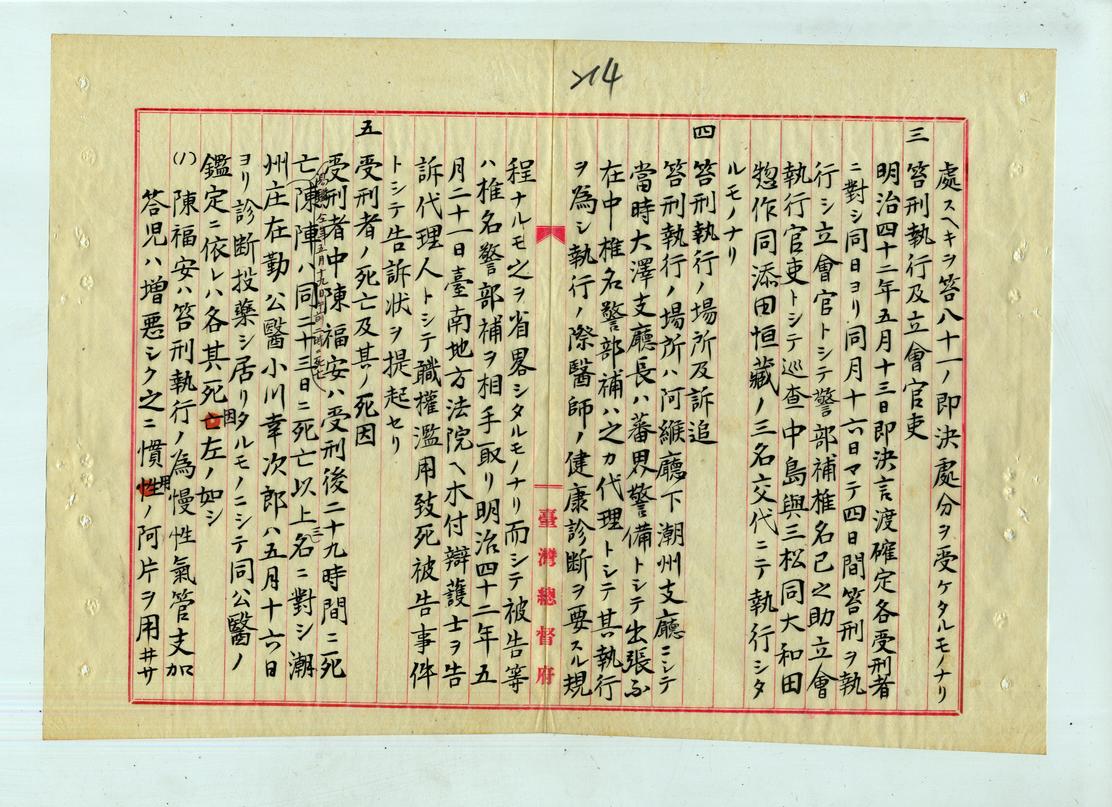 214
處スヘキヲ笞八十一ノ即決處分ヲ受ケタルモノナリ
三 笞刑執行及立會官吏
明治四十二年五月十三日即決言渡確定各受刑者
ニ對シ同日ヨリ同月十六日マテ四日間笞刑ヲ執
行シ立會官トシテ警部補椎名己之助立會
執行官吏トシテ巡查中島與三松同大和田
惣作同添田恒藏ノ三名交代ニテ執行シタ
ルモノナリ
四 笞刑執行ノ場所及訴追
笞刑執行ノ場所ハ阿緱廳下潮州支廳ニシテ
當時大澤支廳長ハ蕃界警備トシテ出張不
在中椎名警部補ハ之カ代理トシテ其執行
ヲ為シ執行ノ際醫師ノ健康診斷ヲ要スル規
臺灣總督府
程ナルモ之ヲ省畧シタルモノナリ而シテ被告等
ハ椎名警部補ヲ相手取リ明治四十二年五
月二十一日臺南地方法院ヘ木付辯護士ヲ告
訴代理人トシテ職權濫用致死被告事件
トシテ告訴狀ヲ提起セリ
五 受刑者ノ死亡及其ノ死因
受刑者中陳福安ハ受刑後二十九時間ニ死
亡陳陣ハ同二十三日ニ死亡以上三名ニ對シ潮
州庄在勤公醫小川幸次郎ハ五月十六日
ヨリ診斷投藥シ居リタルモノニシテ同公醫ノ
鑑定ニ依レハ各其死因左ノ如シ
(ハ) 陳福安ハ笞刑執行ノ為慢性氣管支加
答児ハ增悪シク之ニ慣用ノ阿片ヲ用ヰサ